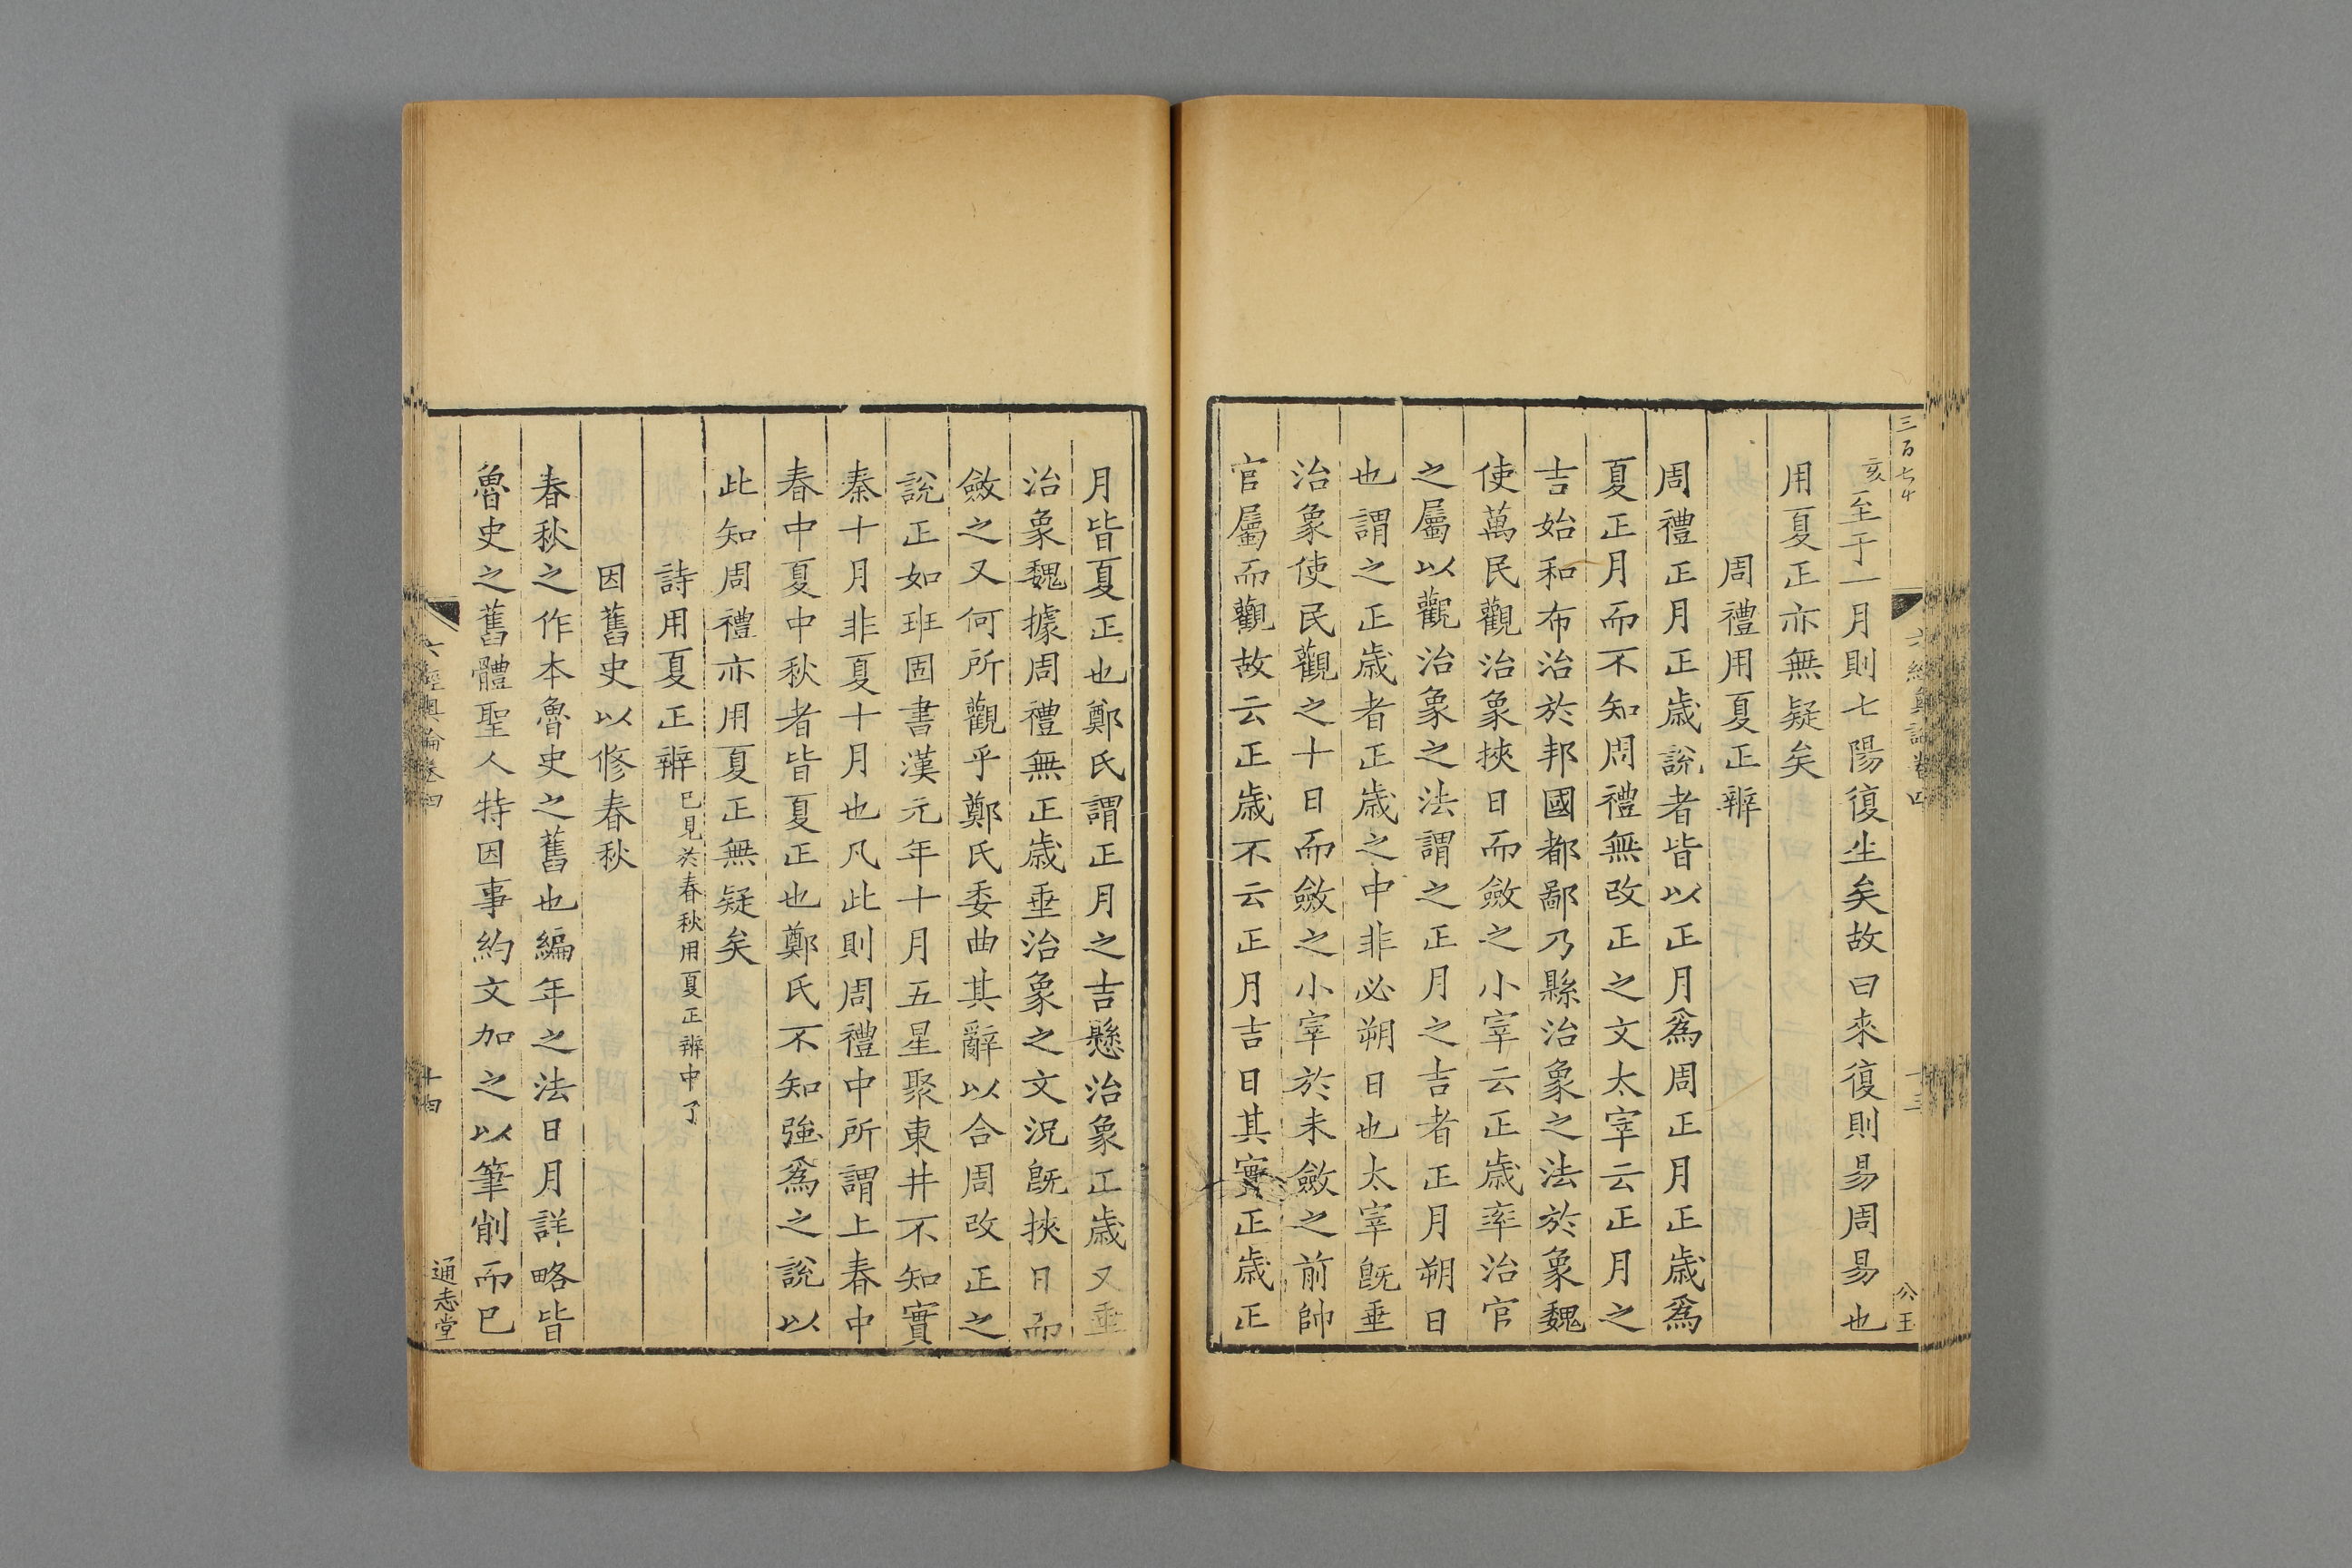 三百七十
亥至于一月則七陽復生矣故曰來復則易周易也
用夏正亦無疑矣
周禮用夏正辨
周禮正月正歳說者皆以正月爲周正月正歳爲
夏正月而不知周禮無改正之文太宰云正月之
吉始和布治於邦國都鄙乃縣治象之法於象魏
使萬民觀治象挾日而斂之小宰云正歳率治官
之屬以觀治象之法謂之正月之吉者正月朔日
也謂之正歳者正歳之中非必朔日也太宰旣垂
治象使民觀之十日而斂之小宰於未斂之前帥
官屬而觀故云正歳不云正月吉日其實正歳正
月皆夏正也鄭氏謂正月之吉懸治象正歳又垂
治象魏據周禮無正歳垂治象之文況旣挾日而
斂之又何所觀乎鄭氏委曲其辭以合周改正之
說正如班固書漢元年十月五星聚東井不知實
秦十月非夏十月也凡此則周禮中所謂上春中
春中夏中秋者皆夏正也鄭氏不知強爲之說以
此知周禮亦用夏正無疑矣
詩用夏正辨已見於春秋用夏正辨中了
因舊史以修春秋
春秋之作本魯史之舊也編年之法日月詳略皆
魯史之舊體聖人特因事約文加之以筆削而已
六經奧論卷四
十四
通志堂